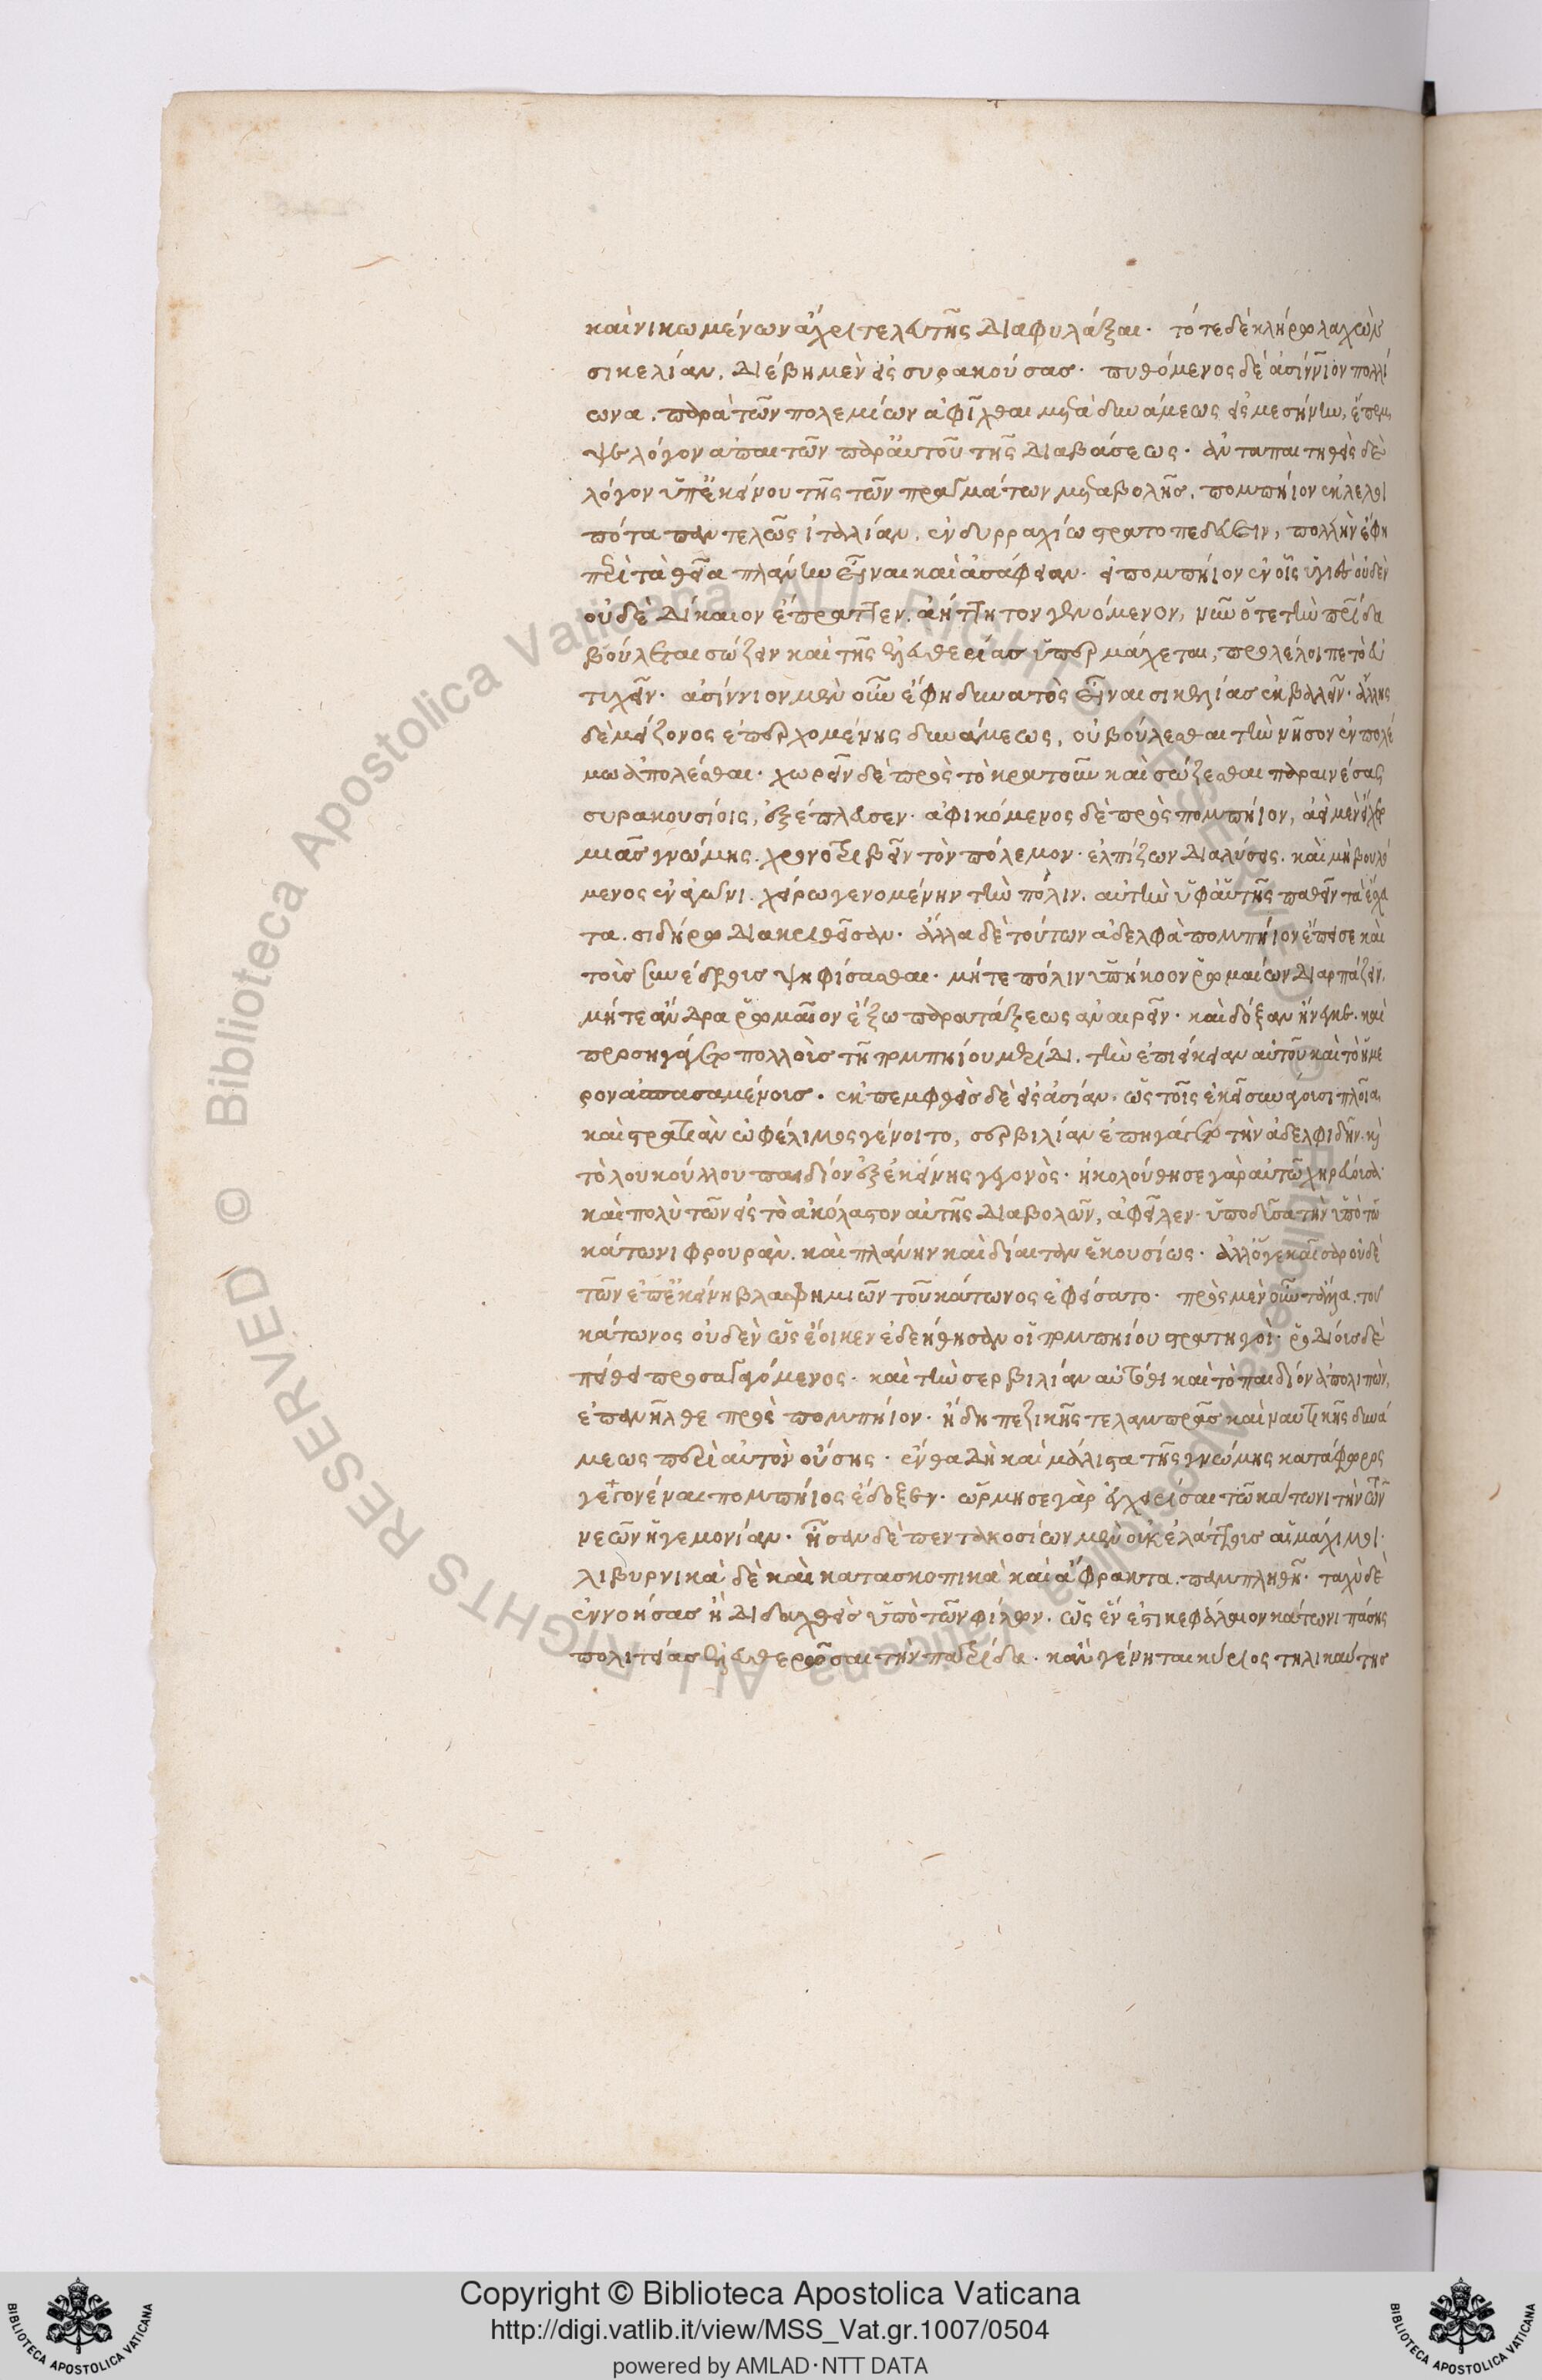 καὶ νικωμένων ἄχρι τελευτῆς διαφυλάξαι· τότε δὲ κλήρω λαχὼν
σικελίαν, διέβη μὲν εἰς συρακούσας· πυθόμενος δὲ ἀσίννιον πολλί
ωνα, παρὰ τῶν πολεμίων ἀφῖχθαι μετὰ δυνάμεως εἰς μεσήνην, ἔπεμ
ψε λόγον ἀπαιτῶν παρ' αὐτοῦ τῆς διαβάσεως· ἀνταπαιτηθεὶς δὲ
λόγον ὑπ' ἐκείνου τῆς τῶν πραγμάτων μεταβολῆς, πομπήιον ἐκλελοι
πότα παντελῶς ἰταλίαν, ἐν δυρραχίω στρατοπεδεύειν, πολλὴν ἔφη
περὶ τὰ θεῖα πλάνην εἶναι καὶ ἀσάφειαν· εἰ πομπήιον ἐν οἷς ὑγιὲς οὐδὲν
οὐδὲ δίκαιον ἔπραττεν, ἀήττητον γενόμενον, νῦν ὅτε τὴν πατρίδα
βούλεται σώζειν καὶ τῆς ἐλευθερίας ὑπερμάχεται, προλέλοιπε τὸ εὐ
τυχεῖν· ἀσίννιον μὲν οὖν ἔφη δυνατὸς εἶναι σικελίας ἐκβαλεῖν· ἄλλης
δὲ μείζονος ἐπερχομένης δυνάμεως, οὐ βούλεσθαι τὴν νῆσον ἐν πολέ
μω ἀπολέσθαι· χωρεῖν δὲ πρὸς τὸ κρατοῦν καὶ σώζεσθαι παραινέσας
συρακουσίοις, ἐξέπλευσεν· ἀφικόμενος δὲ πρὸς πομπήιον, ἀεὶ μὲν εἴχετο
μιᾶς γνώμης, χρονοτριβεῖν τὸν πόλεμον· ἐλπίζων διαλύσεις, καὶ μὴ βουλό
μενος ἐν ἀγῶνι χείρω γενομένην τὴν πόλιν, αὐτὴν ὑφ' αὑτῆς παθεῖν τὰ ἔσχα
τα, σιδήρω διακριθεῖσαν· ἄλλα δὲ τούτων ἀδελφὰ πομπήιον ἔπεισε καὶ
τοὺς συνέδρους ψηφίσασθαι· μήτε πόλιν ὑπήκοον ῥωμαίων διαρπάζειν,
μήτε ἄνδρα ῥωμαῖον ἔξω παρατάξεως ἀναιρεῖν· καὶ δόξαν ἤνεγκε, καὶ
προσηγάγετο πολλοὺς τῆ πομπηίου μερίδι, τὴν ἐπιείκειαν αὐτοῦ καὶ τὸ ἥμε
ρον ἀσπασαμένους· ἐκπεμφθεὶς δὲ εἰς ἀσίαν, ὡς τοῖς ἐκεῖ συνάγουσι πλοῖα
καὶ στρατιὰν ὠφέλιμος γένοιτο, σερβιλίαν ἐπηγάγετο τὴν ἀδελφιδῆν, καὶ
τὸ λουκούλλου παιδίον ἐξ ἐκείνης γεγονὸς· ἠκολούθησε γὰρ αὐτῶ χηρεύουσα·
καὶ πολὺ τῶν εἰς τὸ ἀκόλαστον αὐτῆς διαβολῶν, ἀφεῖλεν· ὑποδῦσα τὴν ὑπὸ τῶ
κάτωνι φρουρὰν, καὶ πλάνην καὶ δίαιταν ἑκουσίως· ἀλλ' ὅγε καῖσαρ οὐδὲ
τῶν ἐπ' ἐκείνη βλασφημιῶν τοῦ κάτωνος ἐφείσατο· πρὸς μὲν οὖν τἆλλα τοῦ
κάτωνος οὐδὲν ὡς ἔοικεν ἐδεήθησαν οἱ πομπηίου στρατηγοί· ῥοδίους δὲ
πειθοῖ προσαγαγόμενος· καὶ τὴν σερβιλίαν αὐτόθι καὶ τὸ παιδίον ἀπολιπὼν,
ἐπανῆλθε πρὸς πομπήιον· ἤδη πεζικῆς τε λαμπρᾶς καὶ ναυτικῆς δυνά
μεως περὶ αὐτὸν οὔσης· ἔνθα δὴ καὶ μάλιστα τῆς γνώμης κατάφωρος
γεγονέναι πομπήιος ἔδοξεν· ὥρμησε γὰρ ἐγχειρίσαι τῶ κάτωνι τὴν τῶν
νεῶν ἡγεμονίαν· ἦσαν δὲ πεντακοσίων μὲν οὐκ ἐλάττους αἱ μάχιμοι·
λιβυρνικὰ δὲ καὶ κατασκοπικὰ καὶ ἄφρακτα, παμπληθῆ· ταχὺ δὲ
ἐννοήσας ἢ διδαχθεὶς ὑπὸ τῶν φίλων, ὡς ἕν ἐστι κεφάλαιον κάτωνι πάσης
πολιτείας ἐλευθερῶσαι τὴν πατρίδα· κἂν γένηται κύριος τηλικαύτης
Copyright © Biblioteca Apostolica Vaticana
http://digi.vatlib.it/view/MSS_Vat.gr.1007/0504
powered by AMLAD·NTT DATA